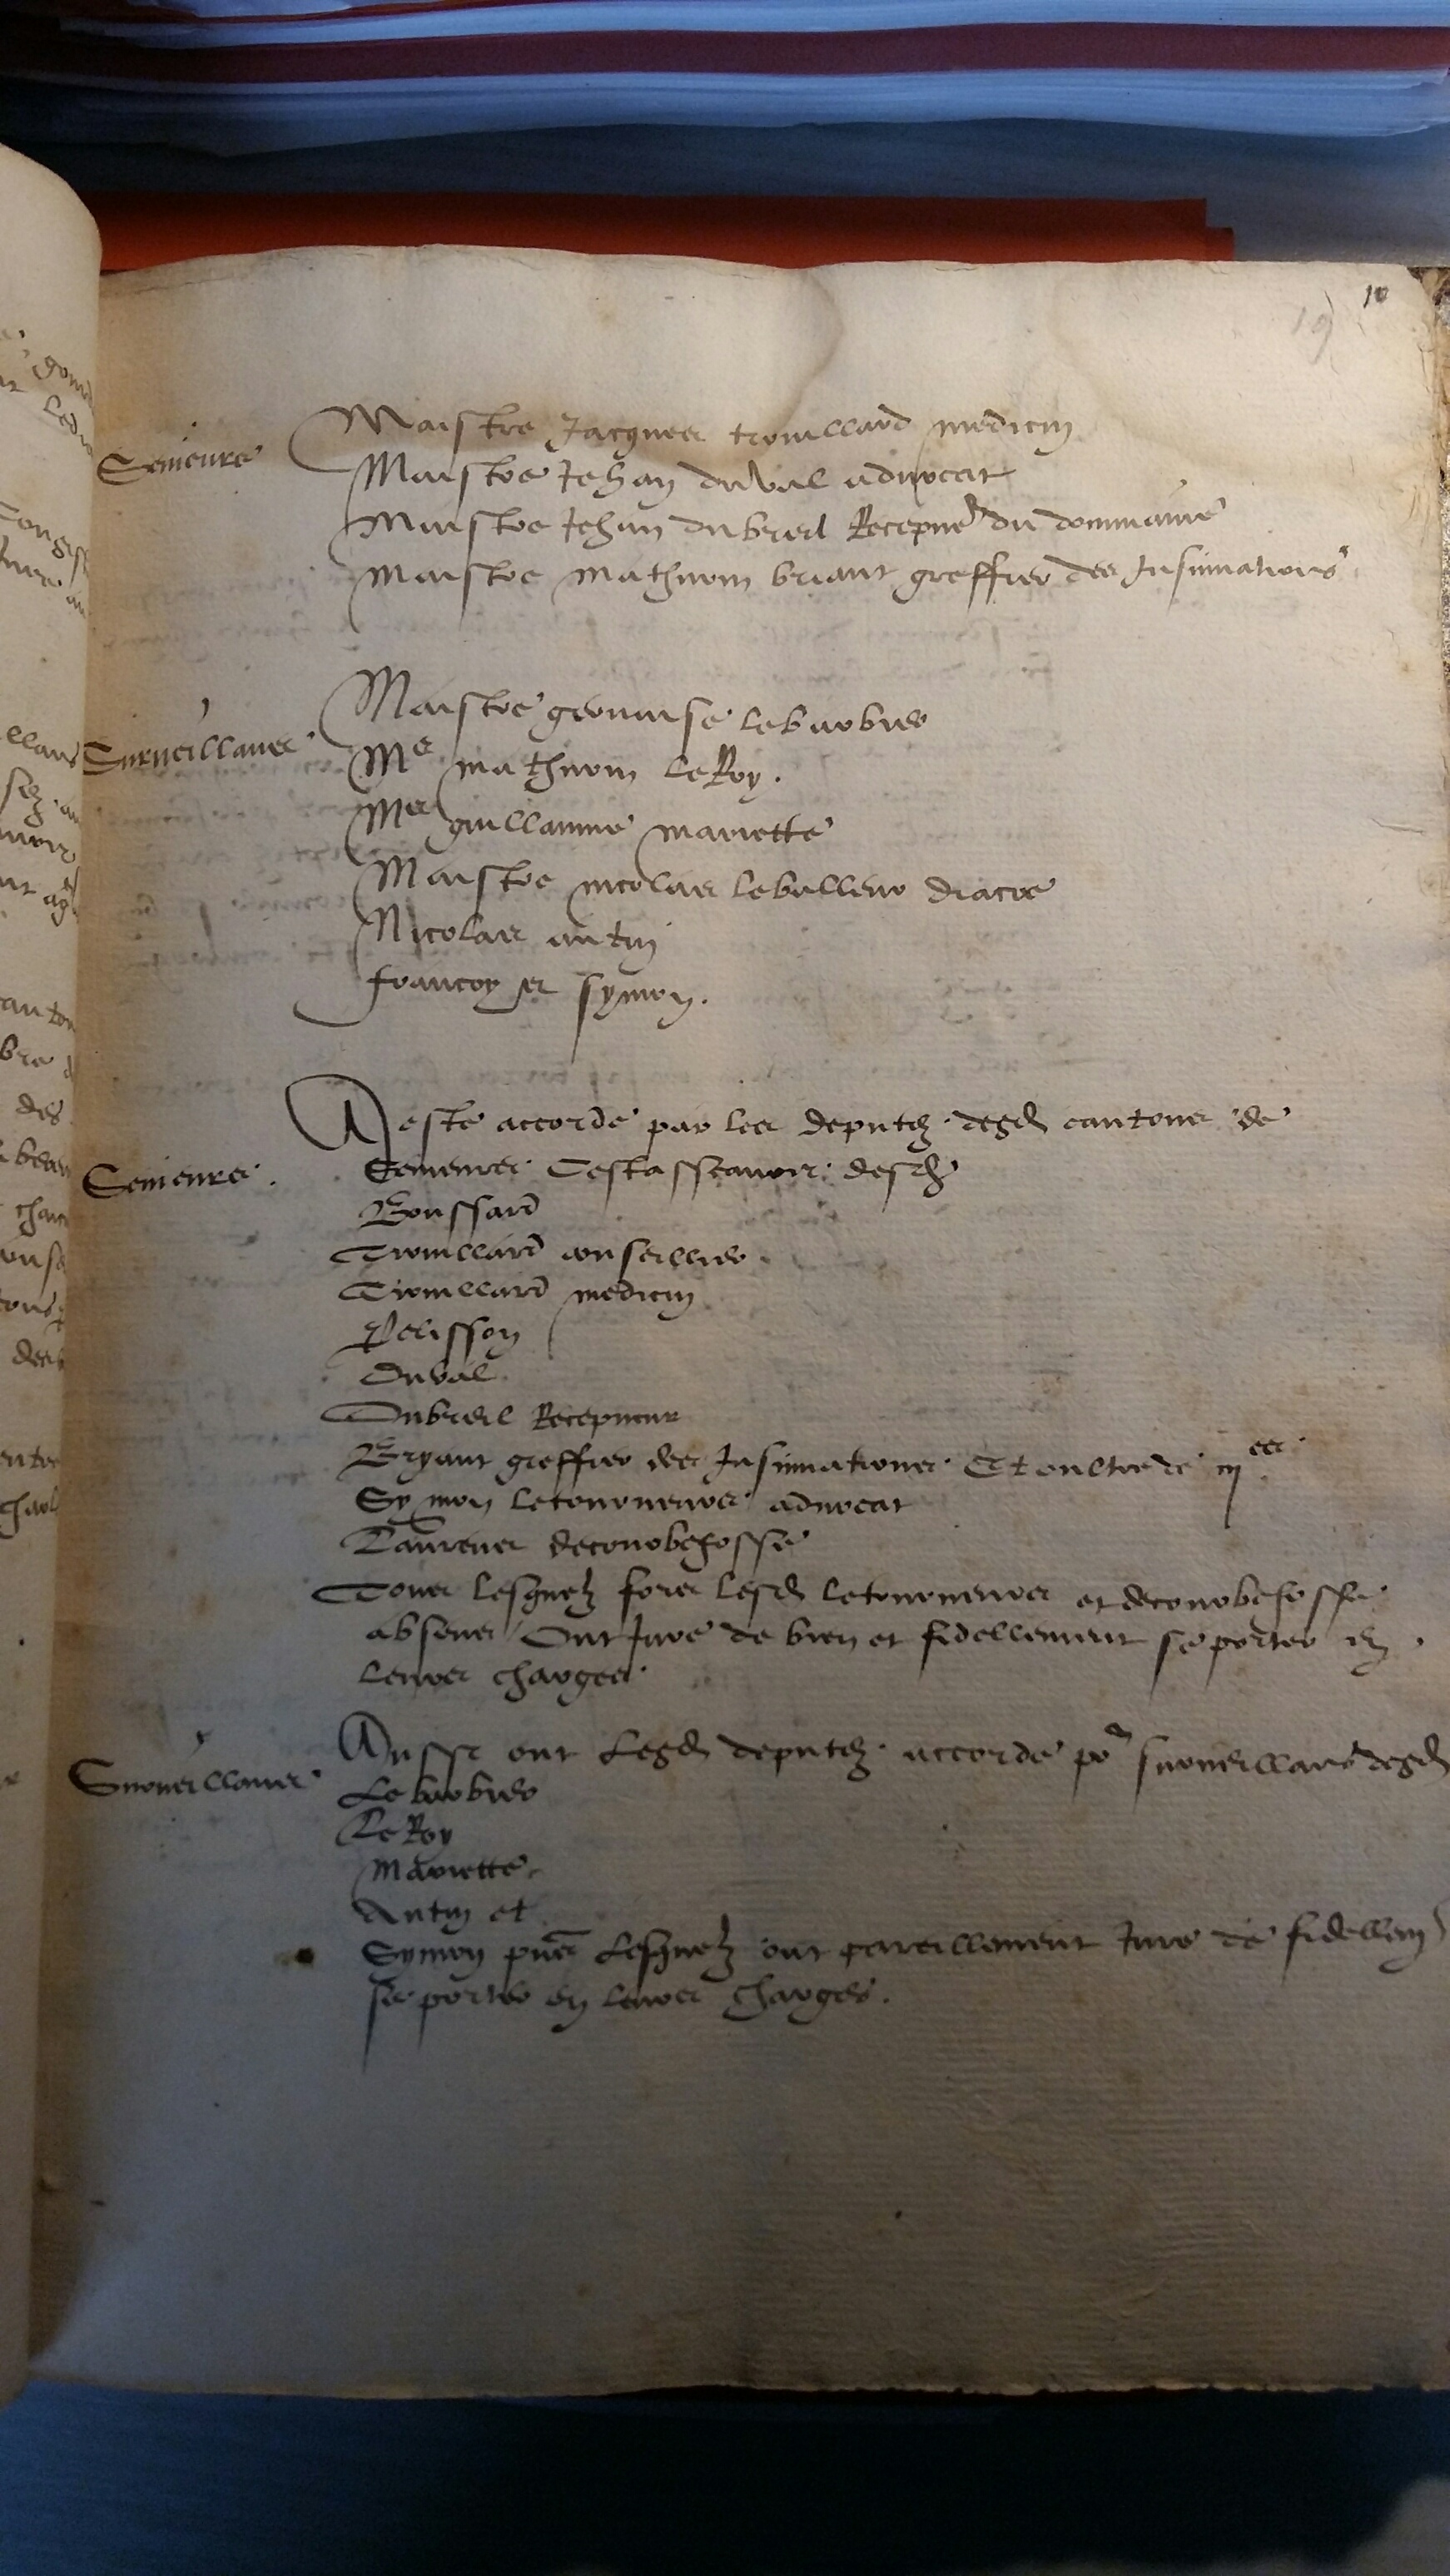 10
19
Senieurs
Maistre Jacques trouillard medicin
Maistre Jehan duval advocat
Maistre Jehan dubreil Recepveur du dommaine
Maistre mathurin briant greffier des Insinuations
Surveillans
Maistre gervaise lebarbier
Me mathurin leRoy.
Me guillaume mariette
Maistre nicolas leballeur diacre
Nicolas antin
francoys symon.
A este accorde par les deputez desd cantons de
Senieurs.
Senieurs Cestasscavoir desd
Boussard
Trouillard conseillier
Trouillard medicin
Pelisson
Duval
Dubreil Recepveur
Bryant greffier des Insinuations Et oultre de
Symon letourneurs advocat
Laurens decourbefosse
Tous lesquelz fors lesd letourneurs et decourbefosse
absens Ont Jure de bien et fidellement se porter en
leurs charges
Surveillans
Aussi ont Lesd deputez accorde po surveillans desd
Le barbier
Le Roy
Mariette
Antin et
Symon pns Lesquelz ont pareillement Jure de fidellem
se porter en leurs charges.